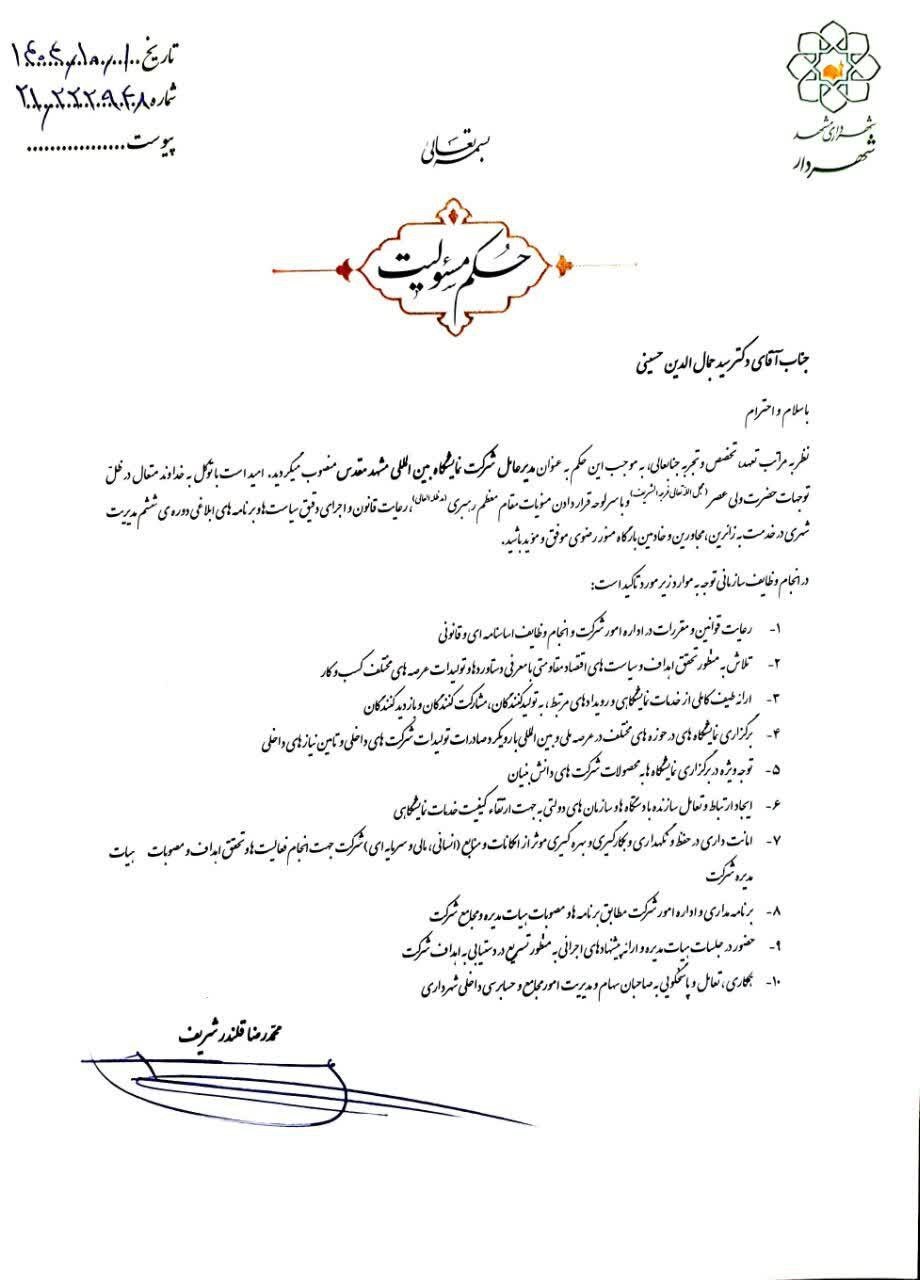 شهرداری مشهد
شهردار
تاریخ
شماره
پیوست.................
بسمه تعالی
حکم مسئولیت
جناب آقای دکتر سید جمال الدین حسینی
با سلام و احترام
نظر به مراتب تعهد، تخصص و تجربه جنابعالی، به موجب این حکم به عنوان مدیرعامل شرکت نمایشگاه بین المللی مشهد مقدس منصوب میگردید. امید است با توکل به خداوند متعال در ظل
توجهات حضرت ولی عصر (عجل الله تعالی فرجه الشریف) و با سرلوحه قرار دادن منویات مقام معظم رهبری (مدظله العالی)، رعایت قانون و اجرای دقیق سیاست‌ها و برنامه های ابلاغی دوره ی ششم مدیریت
شهری در خدمت به زائرین، مجاورین و خادمین بارگاه منور رضوی موفق و مؤید باشید.
در انجام وظایف سازمانی توجه به موارد زیر مورد تاکید است:
۱- رعایت قوانین و مقررات در اداره امور شرکت و انجام وظایف اساسنامه ای و قانونی
۲- تلاش به منظور تحقق اهداف و سیاست های اقتصاد مقاومتی با معرفی دستاوردها و تولیدات عرصه های مختلف کسب و کار
۳- ارائه طیف کاملی از خدمات نمایشگاهی و رویدادهای مرتبط، به تولیدکنندگان، مشارکت کنندگان و بازدیدکنندگان
۴- برگزاری نمایشگاه های در حوزه های مختلف در عرصه ملی و بین المللی با رویکرد صادرات تولیدات شرکت های داخلی و تامین نیازهای داخلی
۵- توجه ویژه در برگزاری نمایشگاه ها به محصولات شرکت های دانش بنیان
۶- ایجاد ارتباط و تعامل سازنده با دستگاه ها و سازمان های دولتی به جهت ارتقاء کیفیت خدمات نمایشگاهی
۷- امانت داری در حفظ و نگهداری و بکارگیری و بهره گیری موثر از امکانات و منابع (انسانی، مالی و سرمایه ای) شرکت جهت انجام فعالیت ها و تحقق اهداف و مصوبات هیات
مدیره شرکت
۸- برنامه مداری و اداره امور شرکت مطابق برنامه ها و مصوبات هیات مدیره و مجامع شرکت
۹- حضور در جلسات هیات مدیره و ارائه پیشنهادهای اجرائی به منظور تسریع در دستیابی به اهداف شرکت
۱۰- همکاری، تعامل و پاسخگویی به صاحبان سهام و مدیریت امور مجامع و حسابرسی داخلی شهرداری
محمدرضا قلندر شریف